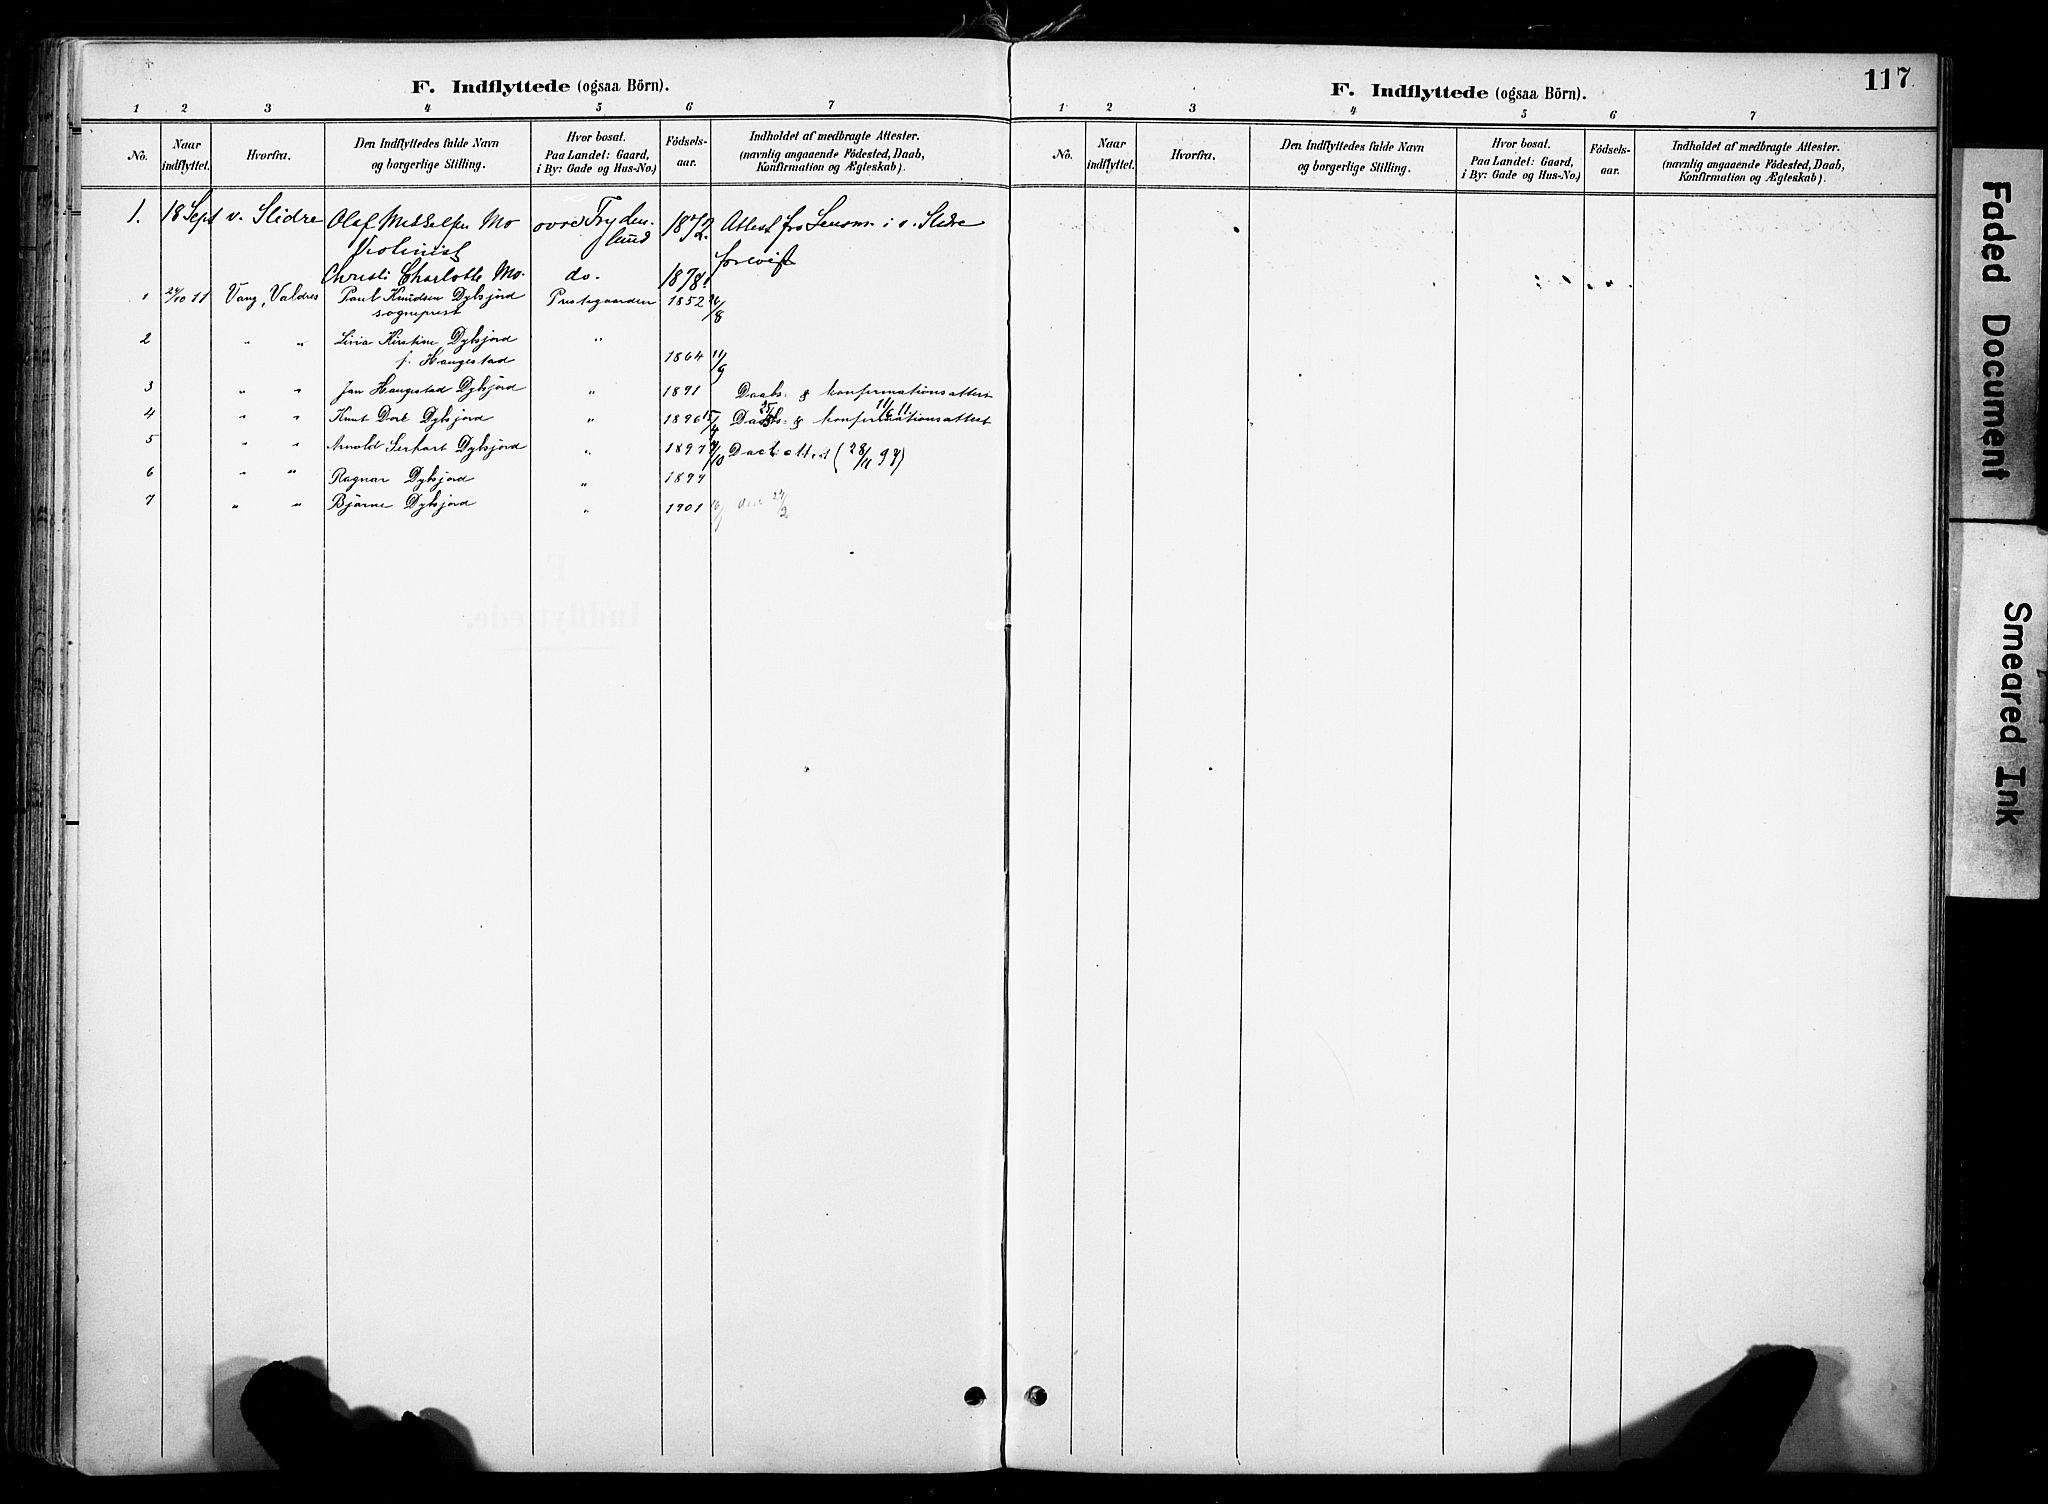 F. Indflyttede (ogsaa Börn).
1 2 3 4 5 6 7
No. Naar indflyttet. Hvorfra. Den Indflyttedes fulde Navn og borgerlige Stilling. Hvor bosat. Paa Landet: Gaard, i By: Gade og Hus-No.) Födsels-aar. Indholdet af medbragte Attester. (navnlig angaaende Födested, Daab, Konfirmation og Ægteskab).
1. 18 Sept v. Slidre Olaf Mo øvre Fryden- 1872. Attest fra i v. Slidre
Violinist lund forevist
Christi Charlotte Mo. do. 1878.
1 24/10 11 Vang, Valdres Paul Knudsen Dybsjord Prestegaarden 1852 26/8
sogneprest
2 " " Livia Kirstine Dybsjord "
f. Haugestad 1864 11/9
3 " " Jan Haugestad Dybsjord " 1891 Daabs- & konfirmationsattest
4 " " Knut Dore Dybsjord " 1896 15/4 Daabs- & konfirmationsattest
5 " " Arnold Dybsjord " 1897 /10 (28/11 97)
6 " " Ragnar Dybsjord " 1899
7 " " Bjarne Dybsjord " 1901
117
F. Indflyttede (ogsaa Börn).
1 2 3 4 5 6 7
No. Naar indflyttet. Hvorfra. Den Indflyttedes fulde Navn og borgerlige Stilling. Hvor bosat. Paa Landet: Gaard, i By: Gade og Hus-No.) Födsels-aar. Indholdet af medbragte Attester. (navnlig angaaende Födested, Daab, Konfirmation og Ægteskab).
Faded Document
Smeared Ink